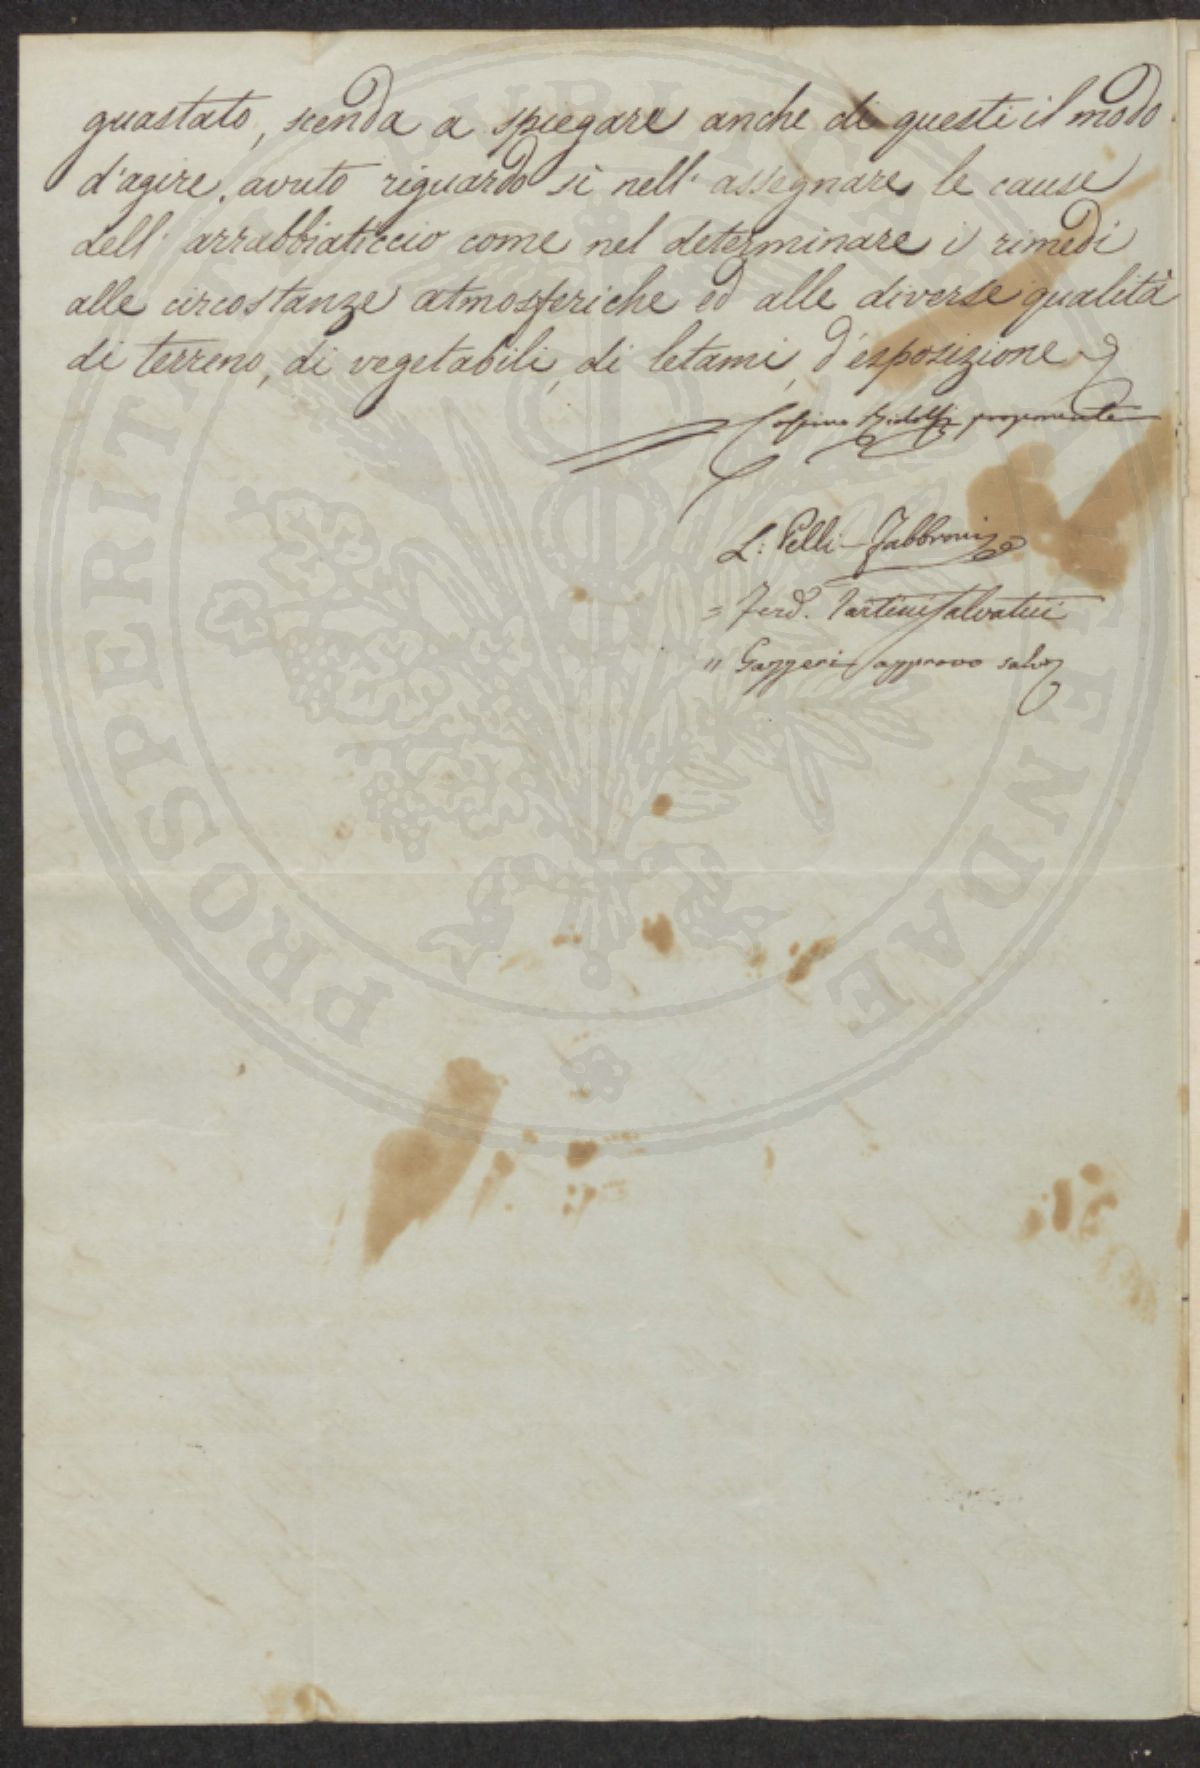 guastato, scenda a spiegare anche di questi il modo
d'agire, avuto riguardo sì nell' assegnare le cause
dell' arrabbiaticcio come nel determinare i rimedi
alle circostanze atmosferiche ed alle diverse qualità
di terreno, di vegetabili, di letami, d'esposizione
Cosimo Ridolfi proponente
L: Pelli-Fabbroni
= Ferd. Tartini Salvatici
" Gazzeri approvo salvo
PROSPERITATI PUBLICAE AUGENDAE